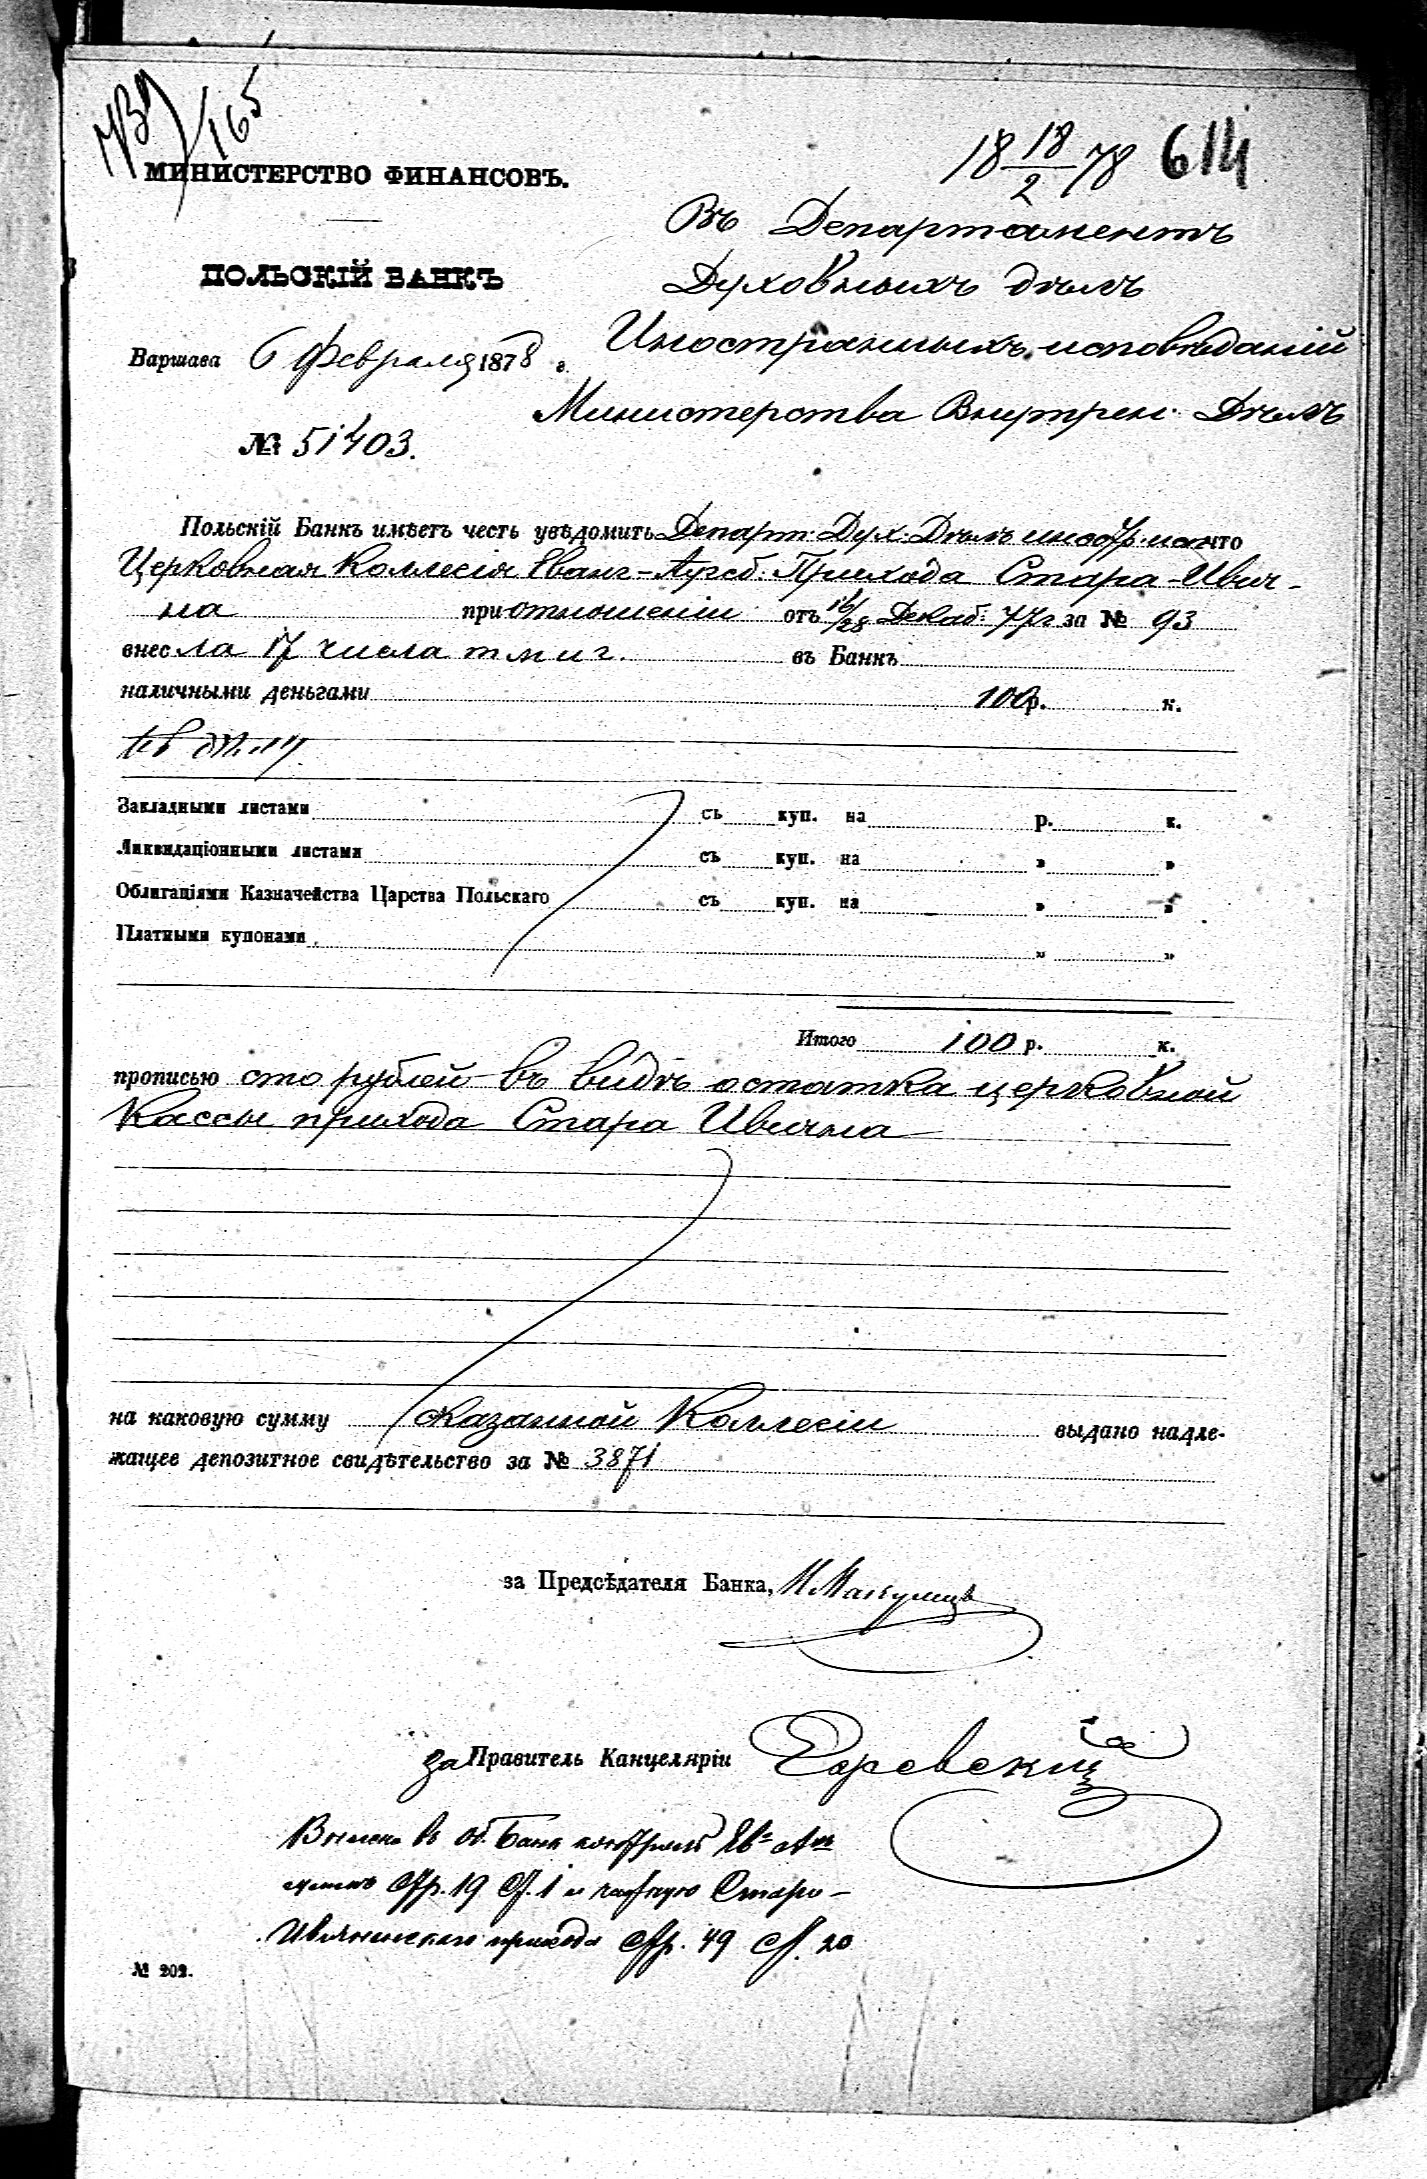 165
18 18/2 78 614
МИНИСТЕРСТВО ФИНАНСОВЪ.
Въ Департаментъ
ПОЛЬСКІЙ БАНКЪ
Духовныхъ дѣлъ
Иностранныхъ исповѣданій
Варшава 6 Февраля 1878 г.
Министерства Внутрен. Дѣлъ
№ 51403.
Польскій Банкъ имѣетъ честь увѣдомить Департ. Дух. Дѣлъ что
Церковная Коллегія Еванг-Аугсб: Прихода Стара-Ивич-
на при отношеніи отъ 16/28 Декаб: 77 г за № 93
внесла 17 числа т м и г. въ Банкъ
наличными деньгами 100 р. к.
Закладными листами съ куп. на р. к.
Ликвидаціонными листами съ куп. на » »
Облигаціями Казначейства Царства Польскаго съ куп. на » »
Платными купонами » »
Итого 100 р. к.
прописью сто рублей въ видѣ остатка церковной
Кассы прихода Стара Ивична
на каковую сумму сказанной Коллегіи выдано надле-
жащее депозитное свидѣтельство за № 3871
за Предсѣдателя Банка,
за Правитель Канцеляріи
въ Банк
стр. 19 ст. 1 и Старо-
прихода стр. 49 ст. 20
№ 202.